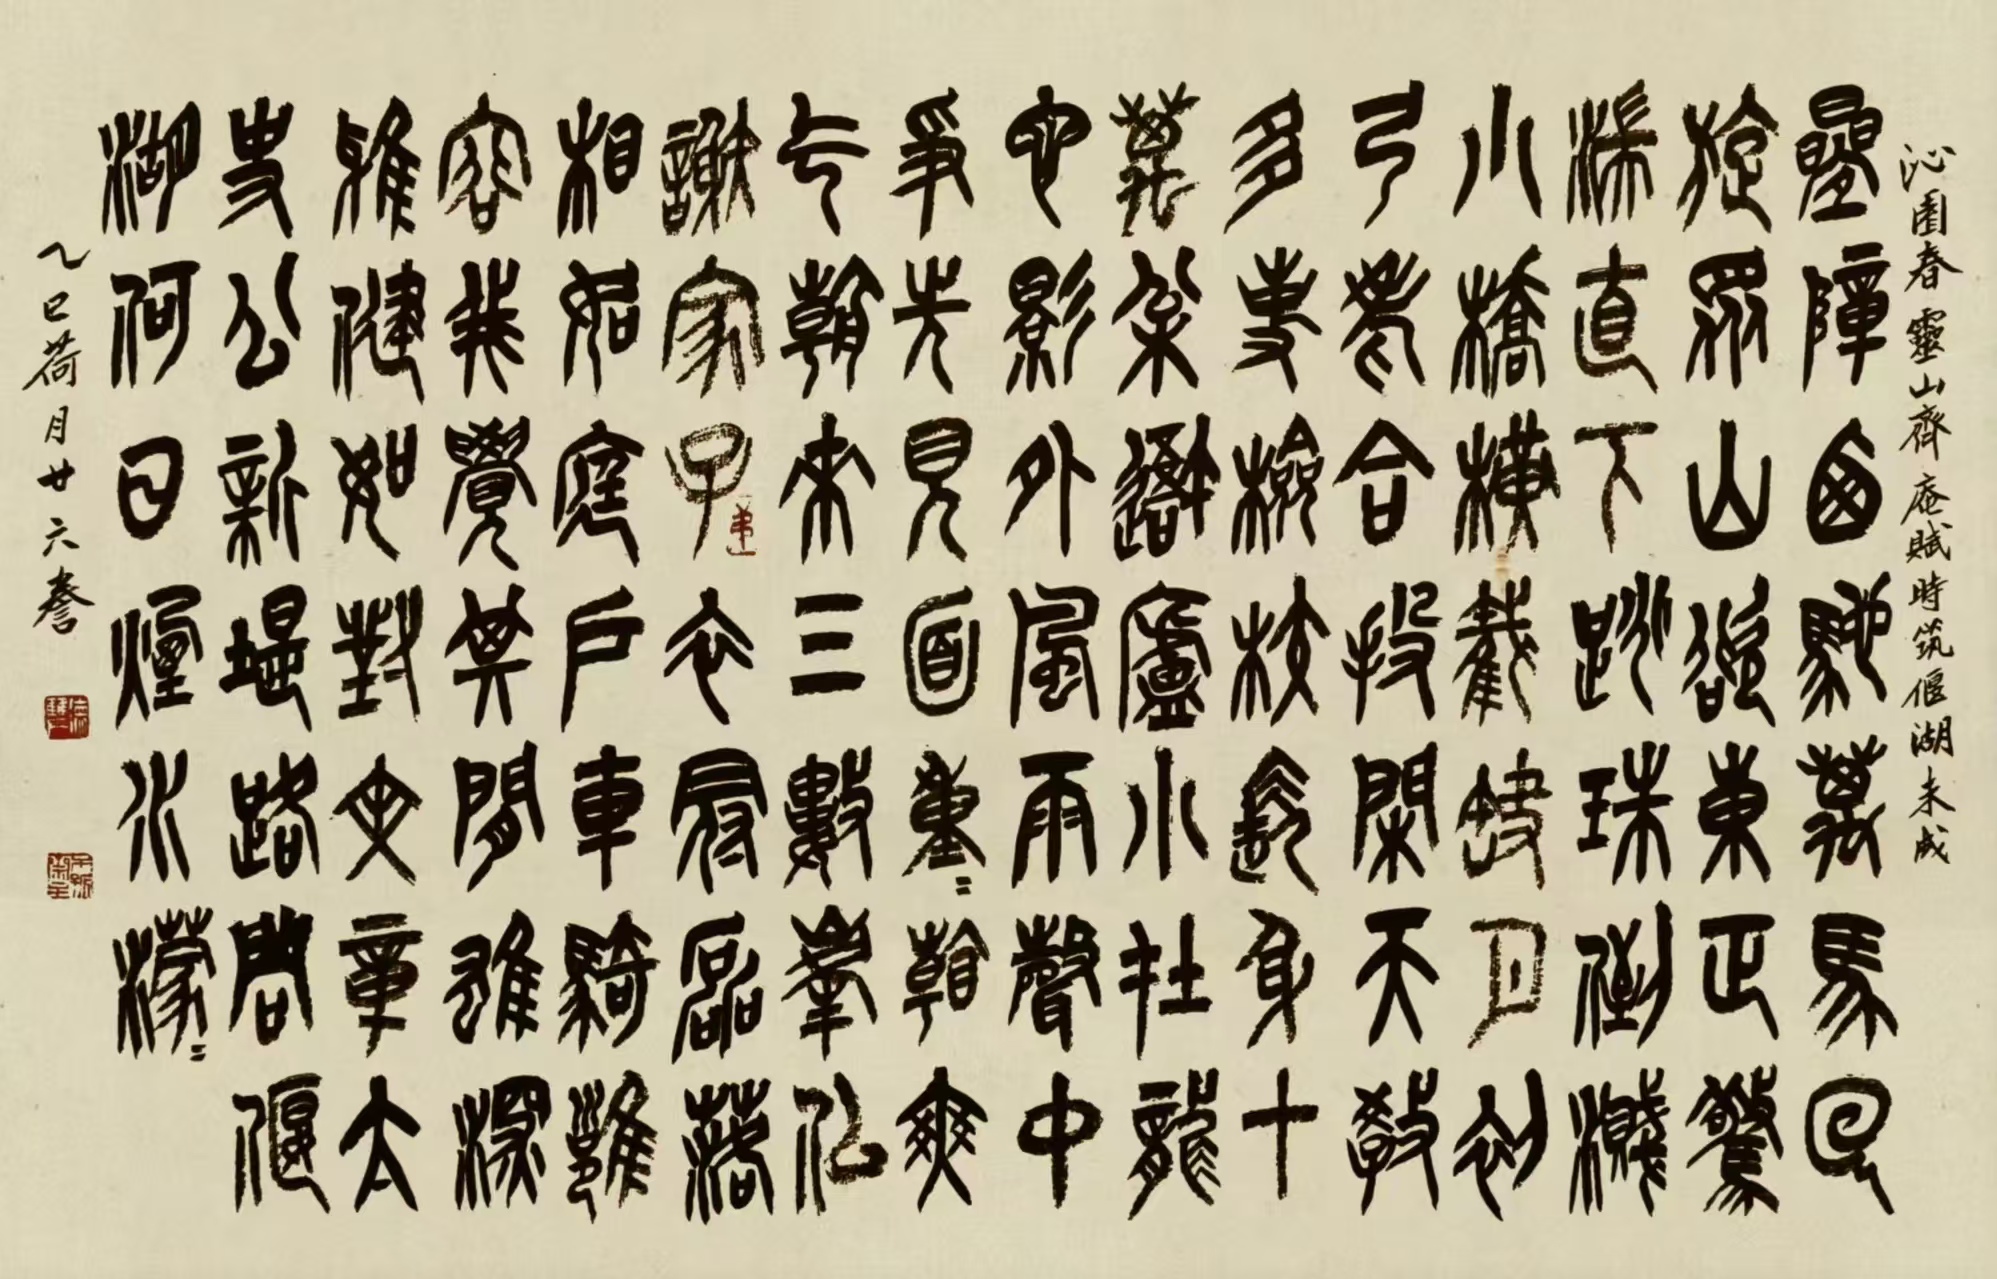 沁園春 靈山齊庵賦時筑偃湖未成
疊障西馳萬馬回
旋眾山欲東正驚
湍直下跳珠倒濺
小橋橫截缺月初
弓老合投閑天教
多事檢校長身十
萬松吾廬小在龍
蛇影外風雨聲中
爭先見面重〻看爽
气朝來三數峯似
謝家子弟衣冠磊落
相如庭戶車騎雍
容我覺其間雄深
雅健如對文章太
史公新堤路問偃
湖何日煙水濛〻
乙巳荷月廿六